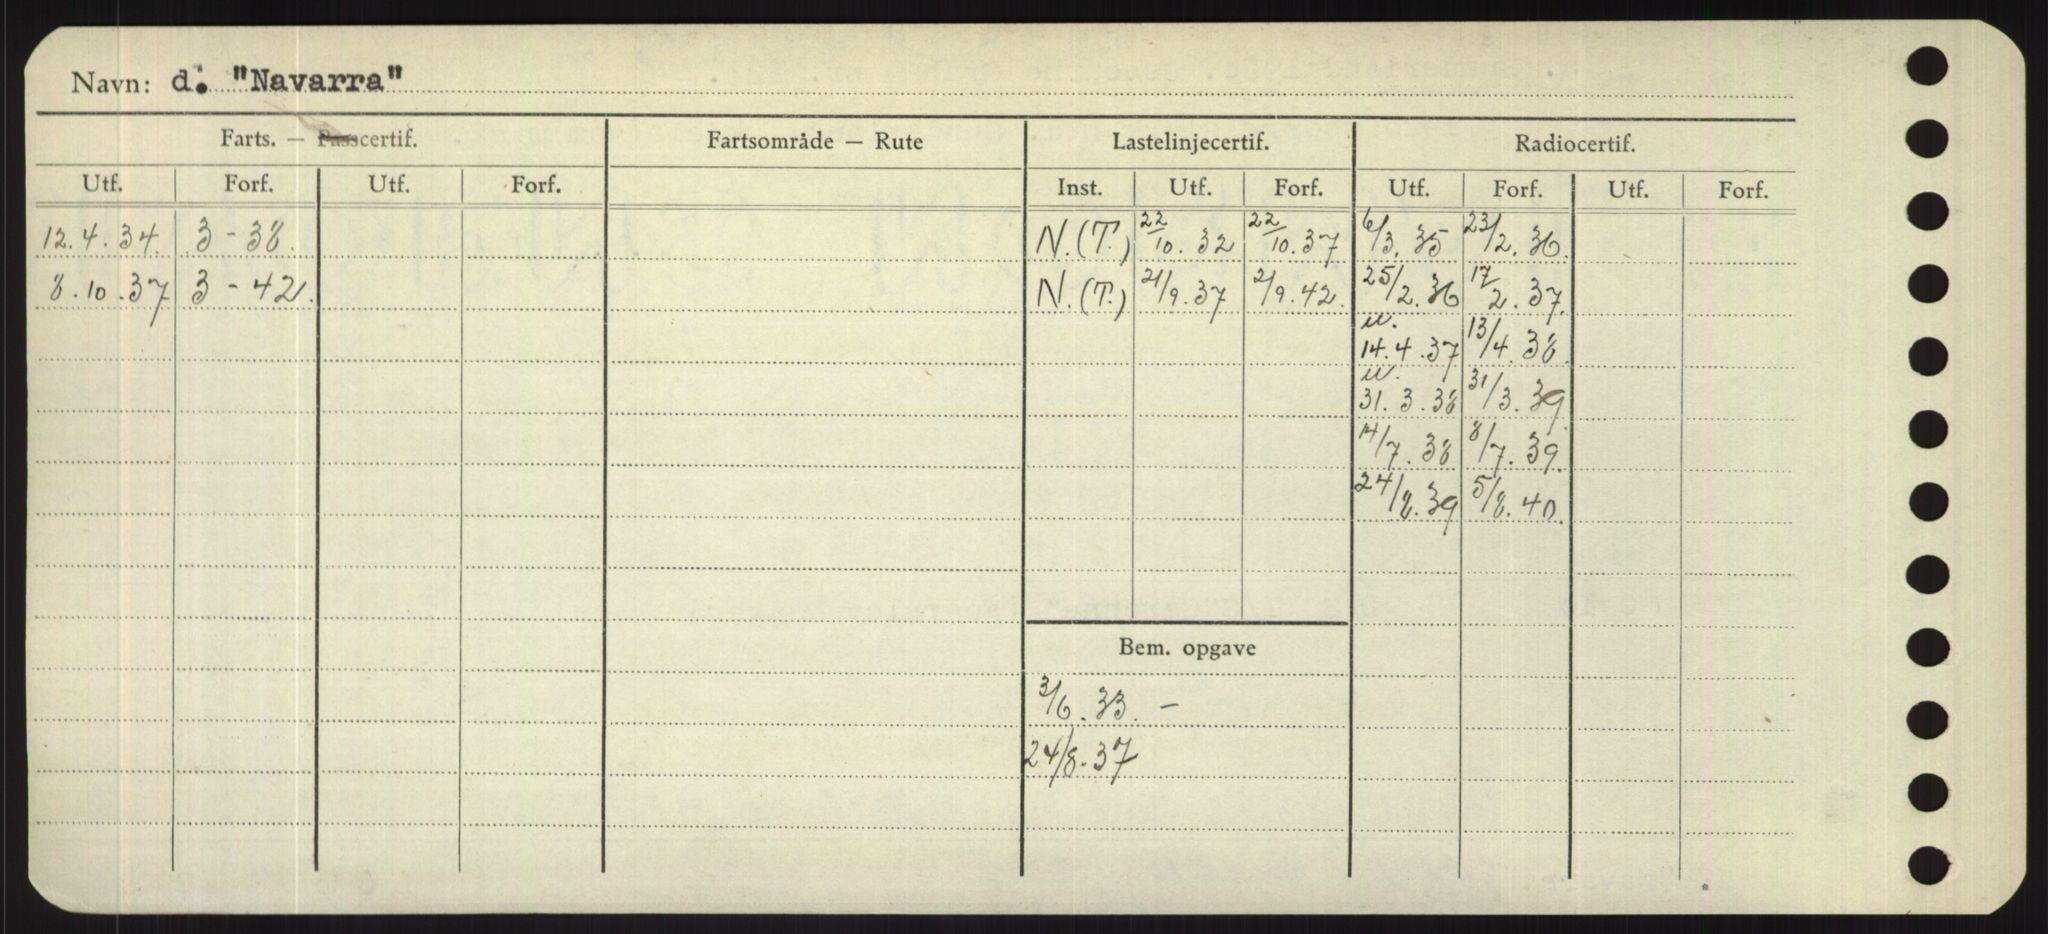 Navn: d. "Navarra"
Farts. — Passcertif. Fartsområde — Rute Lastelinjecertif. Radiocertif.
Utf. Forf. Utf. Forf. Inst. Utf. Forf. Utf. Forf. Utf. Forf.
12.4.34. 3-38. N.(T.) 22/10.32 22/10.37 6/3.35 23/2.36.
8.10.37 3-42. N.(T.) 21/9.37 21/9.42. 25/2.36 17/2.37.
u.
14.4.37 13/4.38.
u.
31.3.38 31/3.39
14/7.38 8/7.39.
24/8.39 5/8.40.
Bem. opgave
3/6.33. —
24/8.37